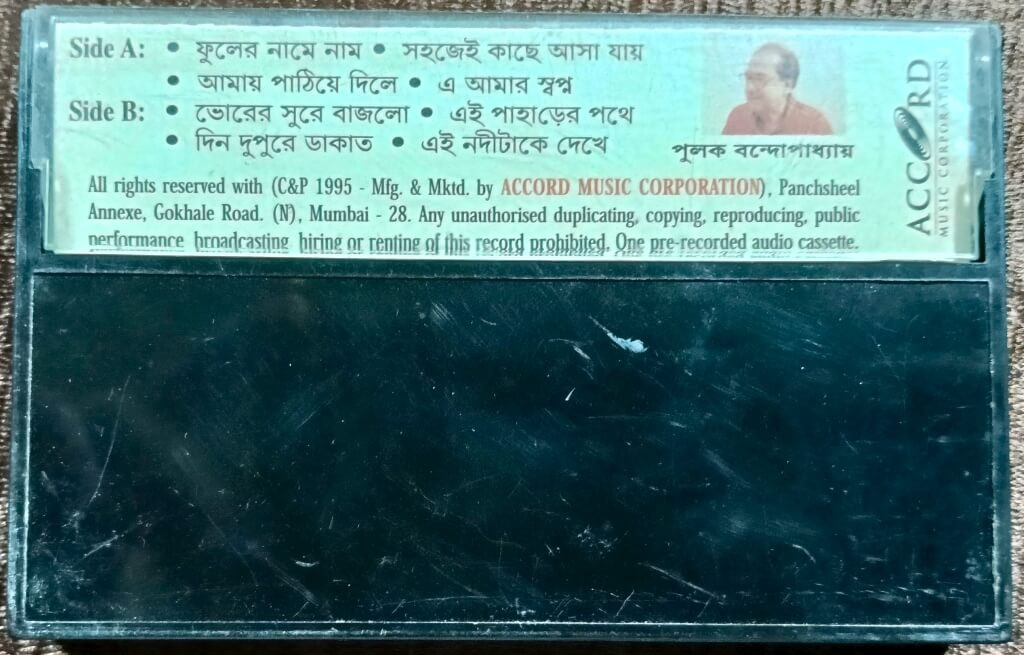 Side A: • ফুলের নামে নাম • সহজেই কাছে আসা যায়
• আমায় পাঠিয়ে দিলে • এ আমার স্বপ্ন
Side B: • ভোরের সুরে বাজলো • এই পাহাড়ের পথে
• দিন দুপুরে ডাকাত • এই নদীটাকে দেখে
পুলক বন্দোপাধ্যায়
All rights reserved with (C&P 1995 - Mfg. & Mktd. by ACCORD MUSIC CORPORATION), Panchsheel
Annexe, Gokhale Road. (N), Mumbai - 28. Any unauthorised duplicating, copying, reproducing, public
performance broadcasting hiring or renting of this record prohibited. One pre-recorded audio cassette.
ACCORD
MUSIC CORPORATION